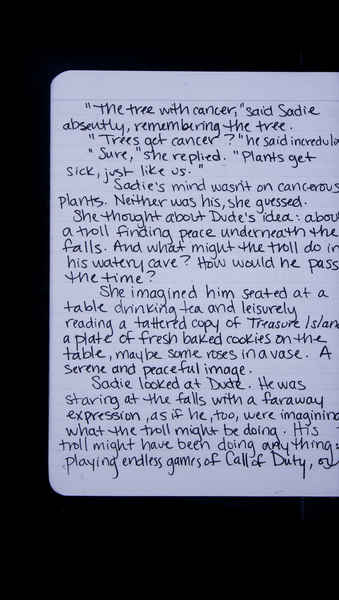 "The tree with cancer," said Sadie
absently, remembering the tree.
"Trees get cancer?" he said incredulo
"Sure," she replied. "Plants get
sick, just like us."
Sadie's mind wasn't on cancerous
plants. Neither was his, she guessed.
She thought about Dude's idea: abou
a troll finding peace underneath the
falls. And what might the troll do in
his watery cave? How would he pass
the time?
She imagined him seated at a
table drinking tea and leisurely
reading a tattered copy of Treasure Islan
a plate of fresh baked cookies on the
table, maybe some roses in a vase. A
serene and peaceful image.
Sadie looked at Dude. He was
staring at the falls with a faraway
expression, as if he, too, were imagining
what the troll might be doing. His
troll might have been doing anything:
playing endless games of Call of Duty, or